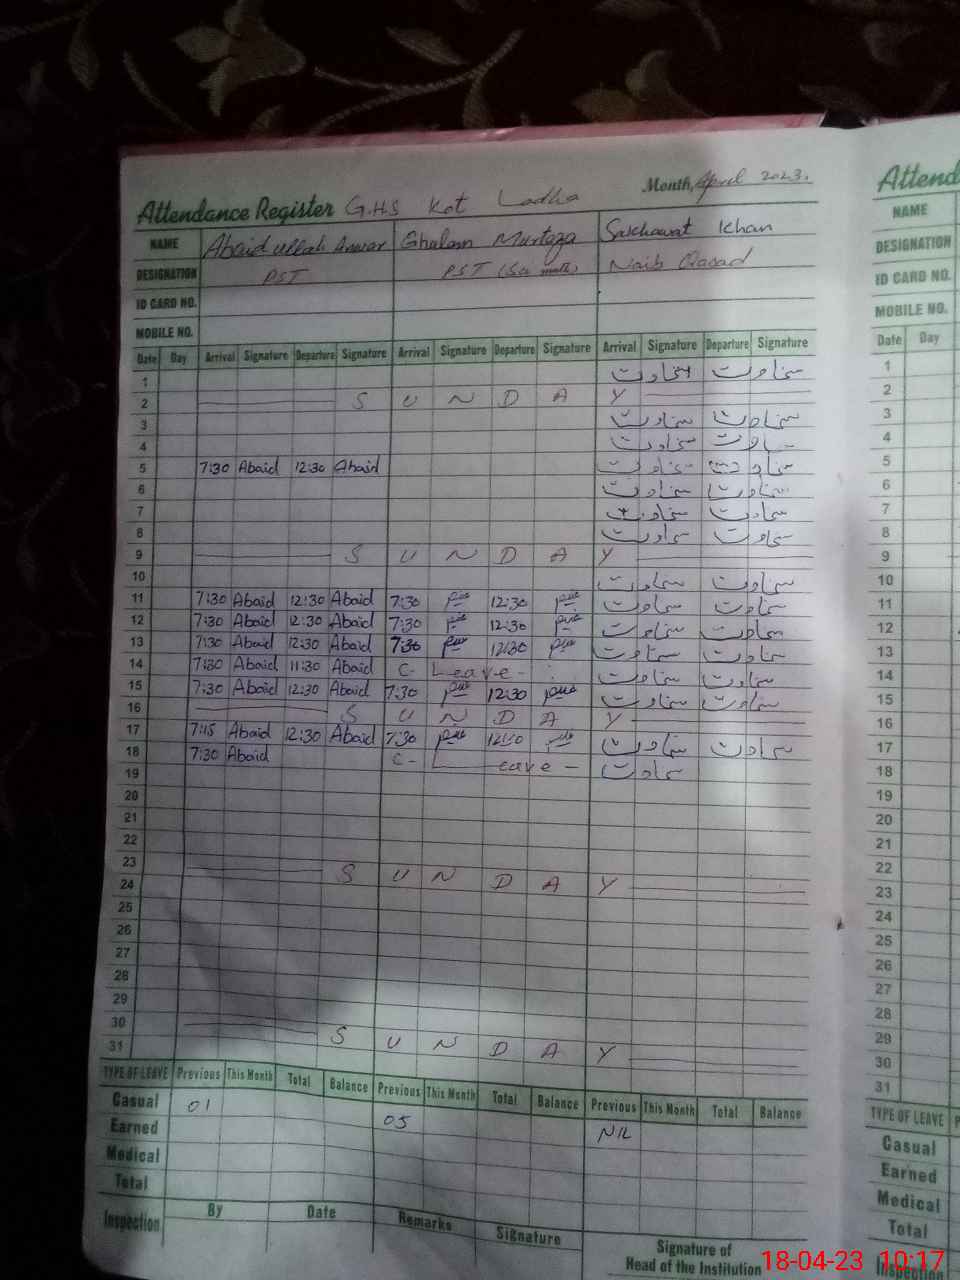 Attendance Register G.H.S Kot Ladha Month, April 2023.
NAME Abaidullah Anwar Ghulam Murtaza Sakhawat Khan
DESIGNATION PST PST (Sci math) Naib Qasad
ID CARD NO.
MOBILE NO.
Date Day Arrival Signature Departure Signature Arrival Signature Departure Signature Arrival Signature Departure Signature
1 سخاوت سخاوت
2 S U N D A Y
3 سخاوت سخاوت
4 سخاوت سخاوت
5 7:30 Abaid 12:30 Abaid سخاوت سخاوت
6 سخاوت سخاوت
7 سخاوت سخاوت
8 سخاوت سخاوت
9 S U N D A Y
10 سخاوت سخاوت
11 7:30 Abaid 12:30 Abaid 7:30 12:30 سخاوت سخاوت
12 7:30 Abaid 12:30 Abaid 7:30 12:30 سخاوت سخاوت
13 7:30 Abaid 12:30 Abaid 7:30 12:30 سخاوت سخاوت
14 7:30 Abaid 11:30 Abaid C- Leave - سخاوت سخاوت
15 7:30 Abaid 12:30 Abaid 7:30 12:30 سخاوت سخاوت
16 S U N D A Y
17 7:15 Abaid 12:30 Abaid 7:30 12:30 سخاوت سخاوت
18 7:30 Abaid C- Leave - سخاوت
19
20
21
22
23 S U N D A Y
24
25
26
27
28
29
30 S U N D A Y
31
TYPE OF LEAVE Previous This Month Total Balance Previous This Month Total Balance Previous This Month Total Balance
Casual 01 05 NIL
Earned
Medical
Total
Inspection By Date Remarks Signature Signature of
Head of the Institution
Attend
NAME
DESIGNATION
ID CARD NO.
MOBILE NO.
Date Day
1
2
3
4
5
6
7
8
9
10
11
12
13
14
15
16
17
18
19
20
21
22
23
24
25
26
27
28
29
30
31
TYPE OF LEAVE P
Casual
Earned
Medical
Total
Inspection
18-04-23 10:17